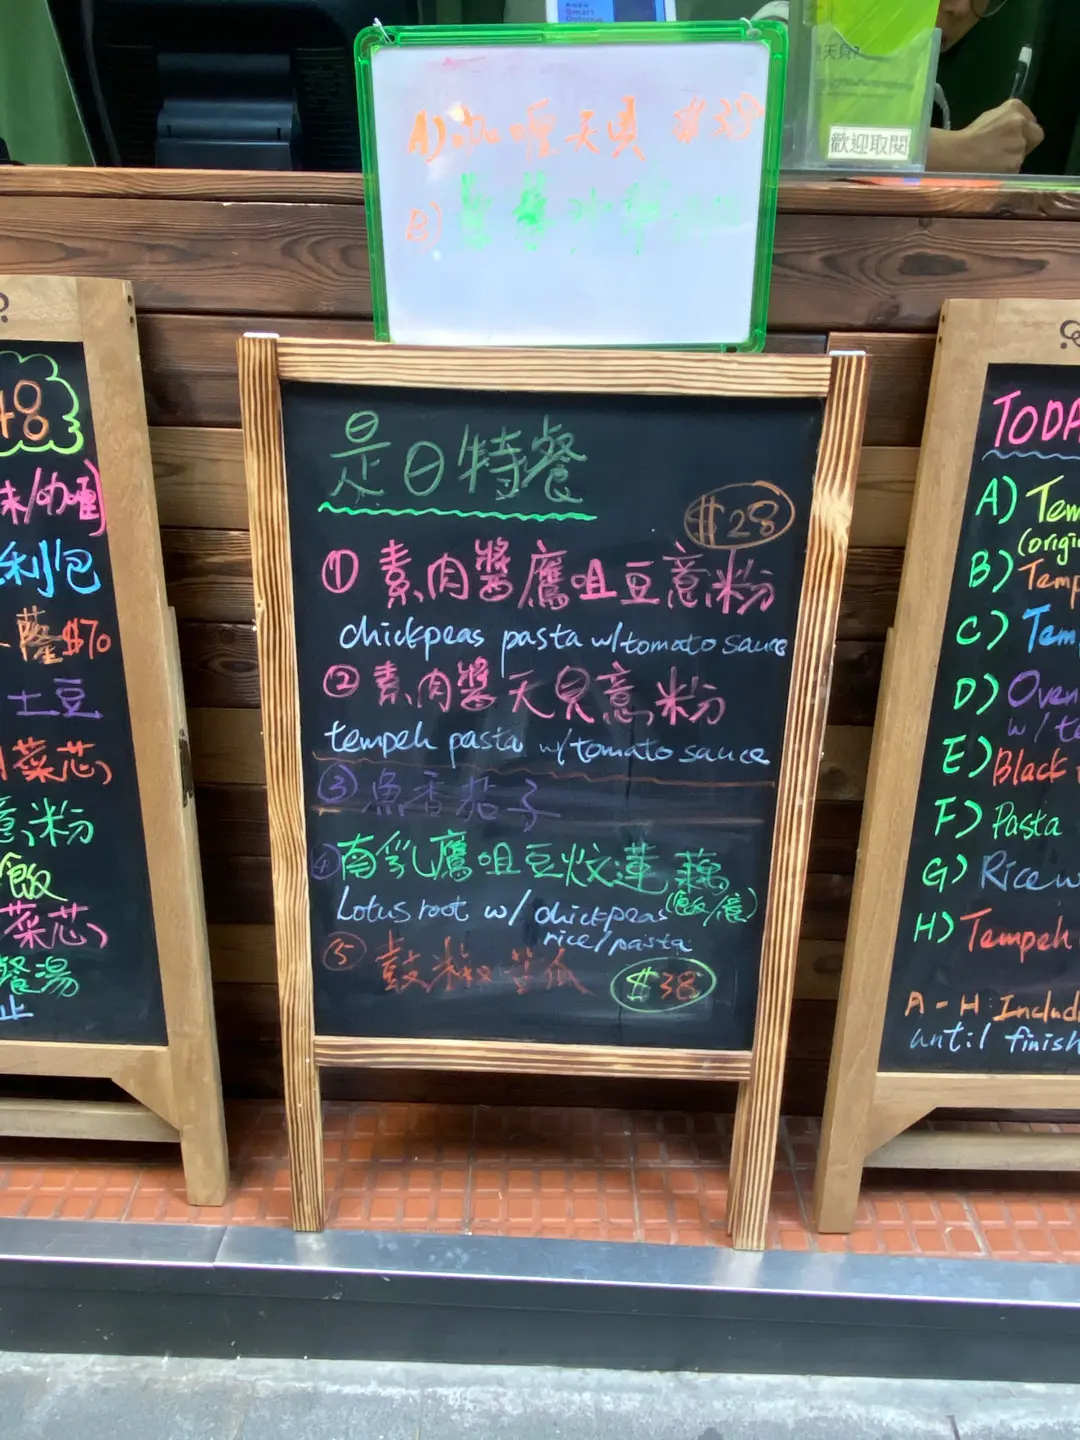 Smart
歡迎取閱
A) 咖喱天貝 $38
B)
48
味/咖喱)
利包
蘿 $70
土豆
菜芯)
意粉
飯
菜芯)
餐湯
止
是日特餐
$28
① 素肉醬鷹咀豆意粉
chickpeas pasta w/tomato sauce
② 素肉醬天貝意粉
tempeh pasta w/tomato sauce
③ 魚香茄子
④ 南乳鷹咀豆炆蓮藕
(飯/意)
Lotus root w/ chickpeas
rice/pasta
⑤ 鼓粉
$38
TODA
A) Tem
(origin
B) Temp
C) Tem
D) Oven
w/te
E) Black
F) Pasta
G) Rice w
H) Tempeh
A - H: Includ
until finish